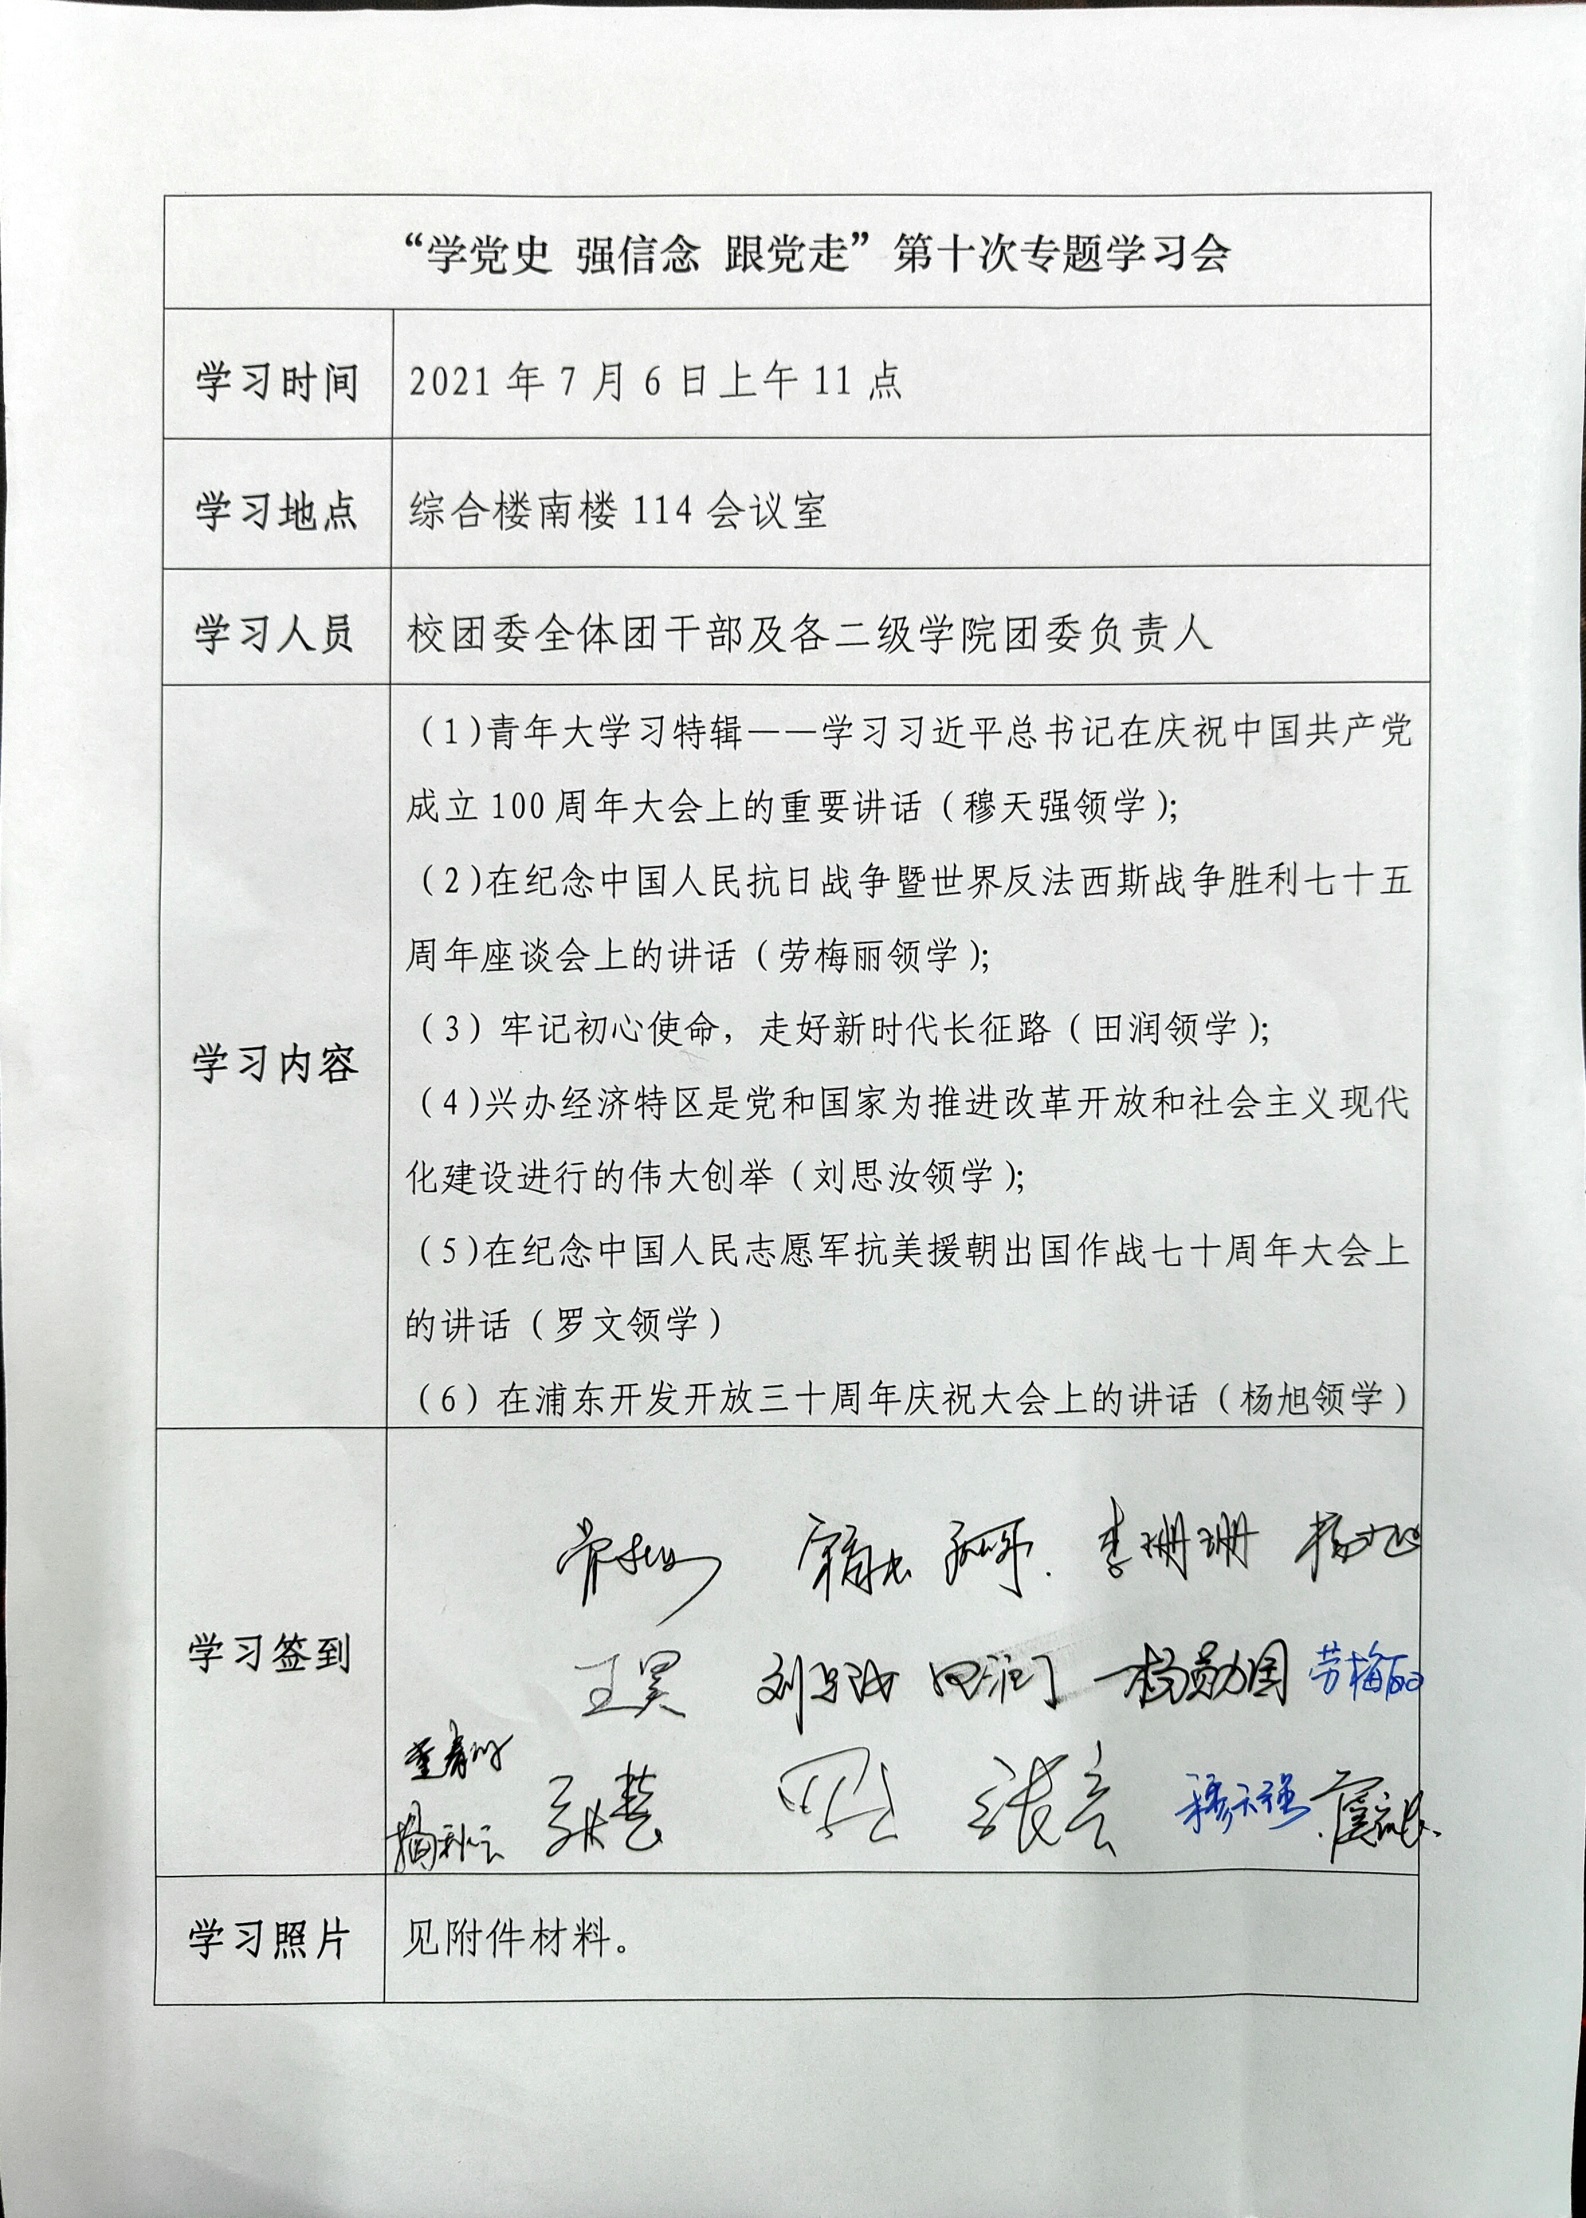 “学党史 强信念 跟党走”第十次专题学习会
学习时间
2021年7月6日上午11点
学习地点
综合楼南楼114会议室
学习人员
校团委全体团干部及各二级学院团委负责人
学习内容
（1)青年大学习特辑——学习习近平总书记在庆祝中国共产党
成立100周年大会上的重要讲话（穆天强领学）；
（2)在纪念中国人民抗日战争暨世界反法西斯战争胜利七十五
周年座谈会上的讲话（劳梅丽领学）；
（3）牢记初心使命，走好新时代长征路（田润领学）；
（4)兴办经济特区是党和国家为推进改革开放和社会主义现代
化建设进行的伟大创举（刘思汝领学）；
（5)在纪念中国人民志愿军抗美援朝出国作战七十周年大会上
的讲话（罗文领学）
（6）在浦东开发开放三十周年庆祝大会上的讲话（杨旭领学）
学习签到
李珊珊 杨旭
王昊 刘思汝 田润 杨勋国 劳梅丽
罗文 穆天强
学习照片
见附件材料。